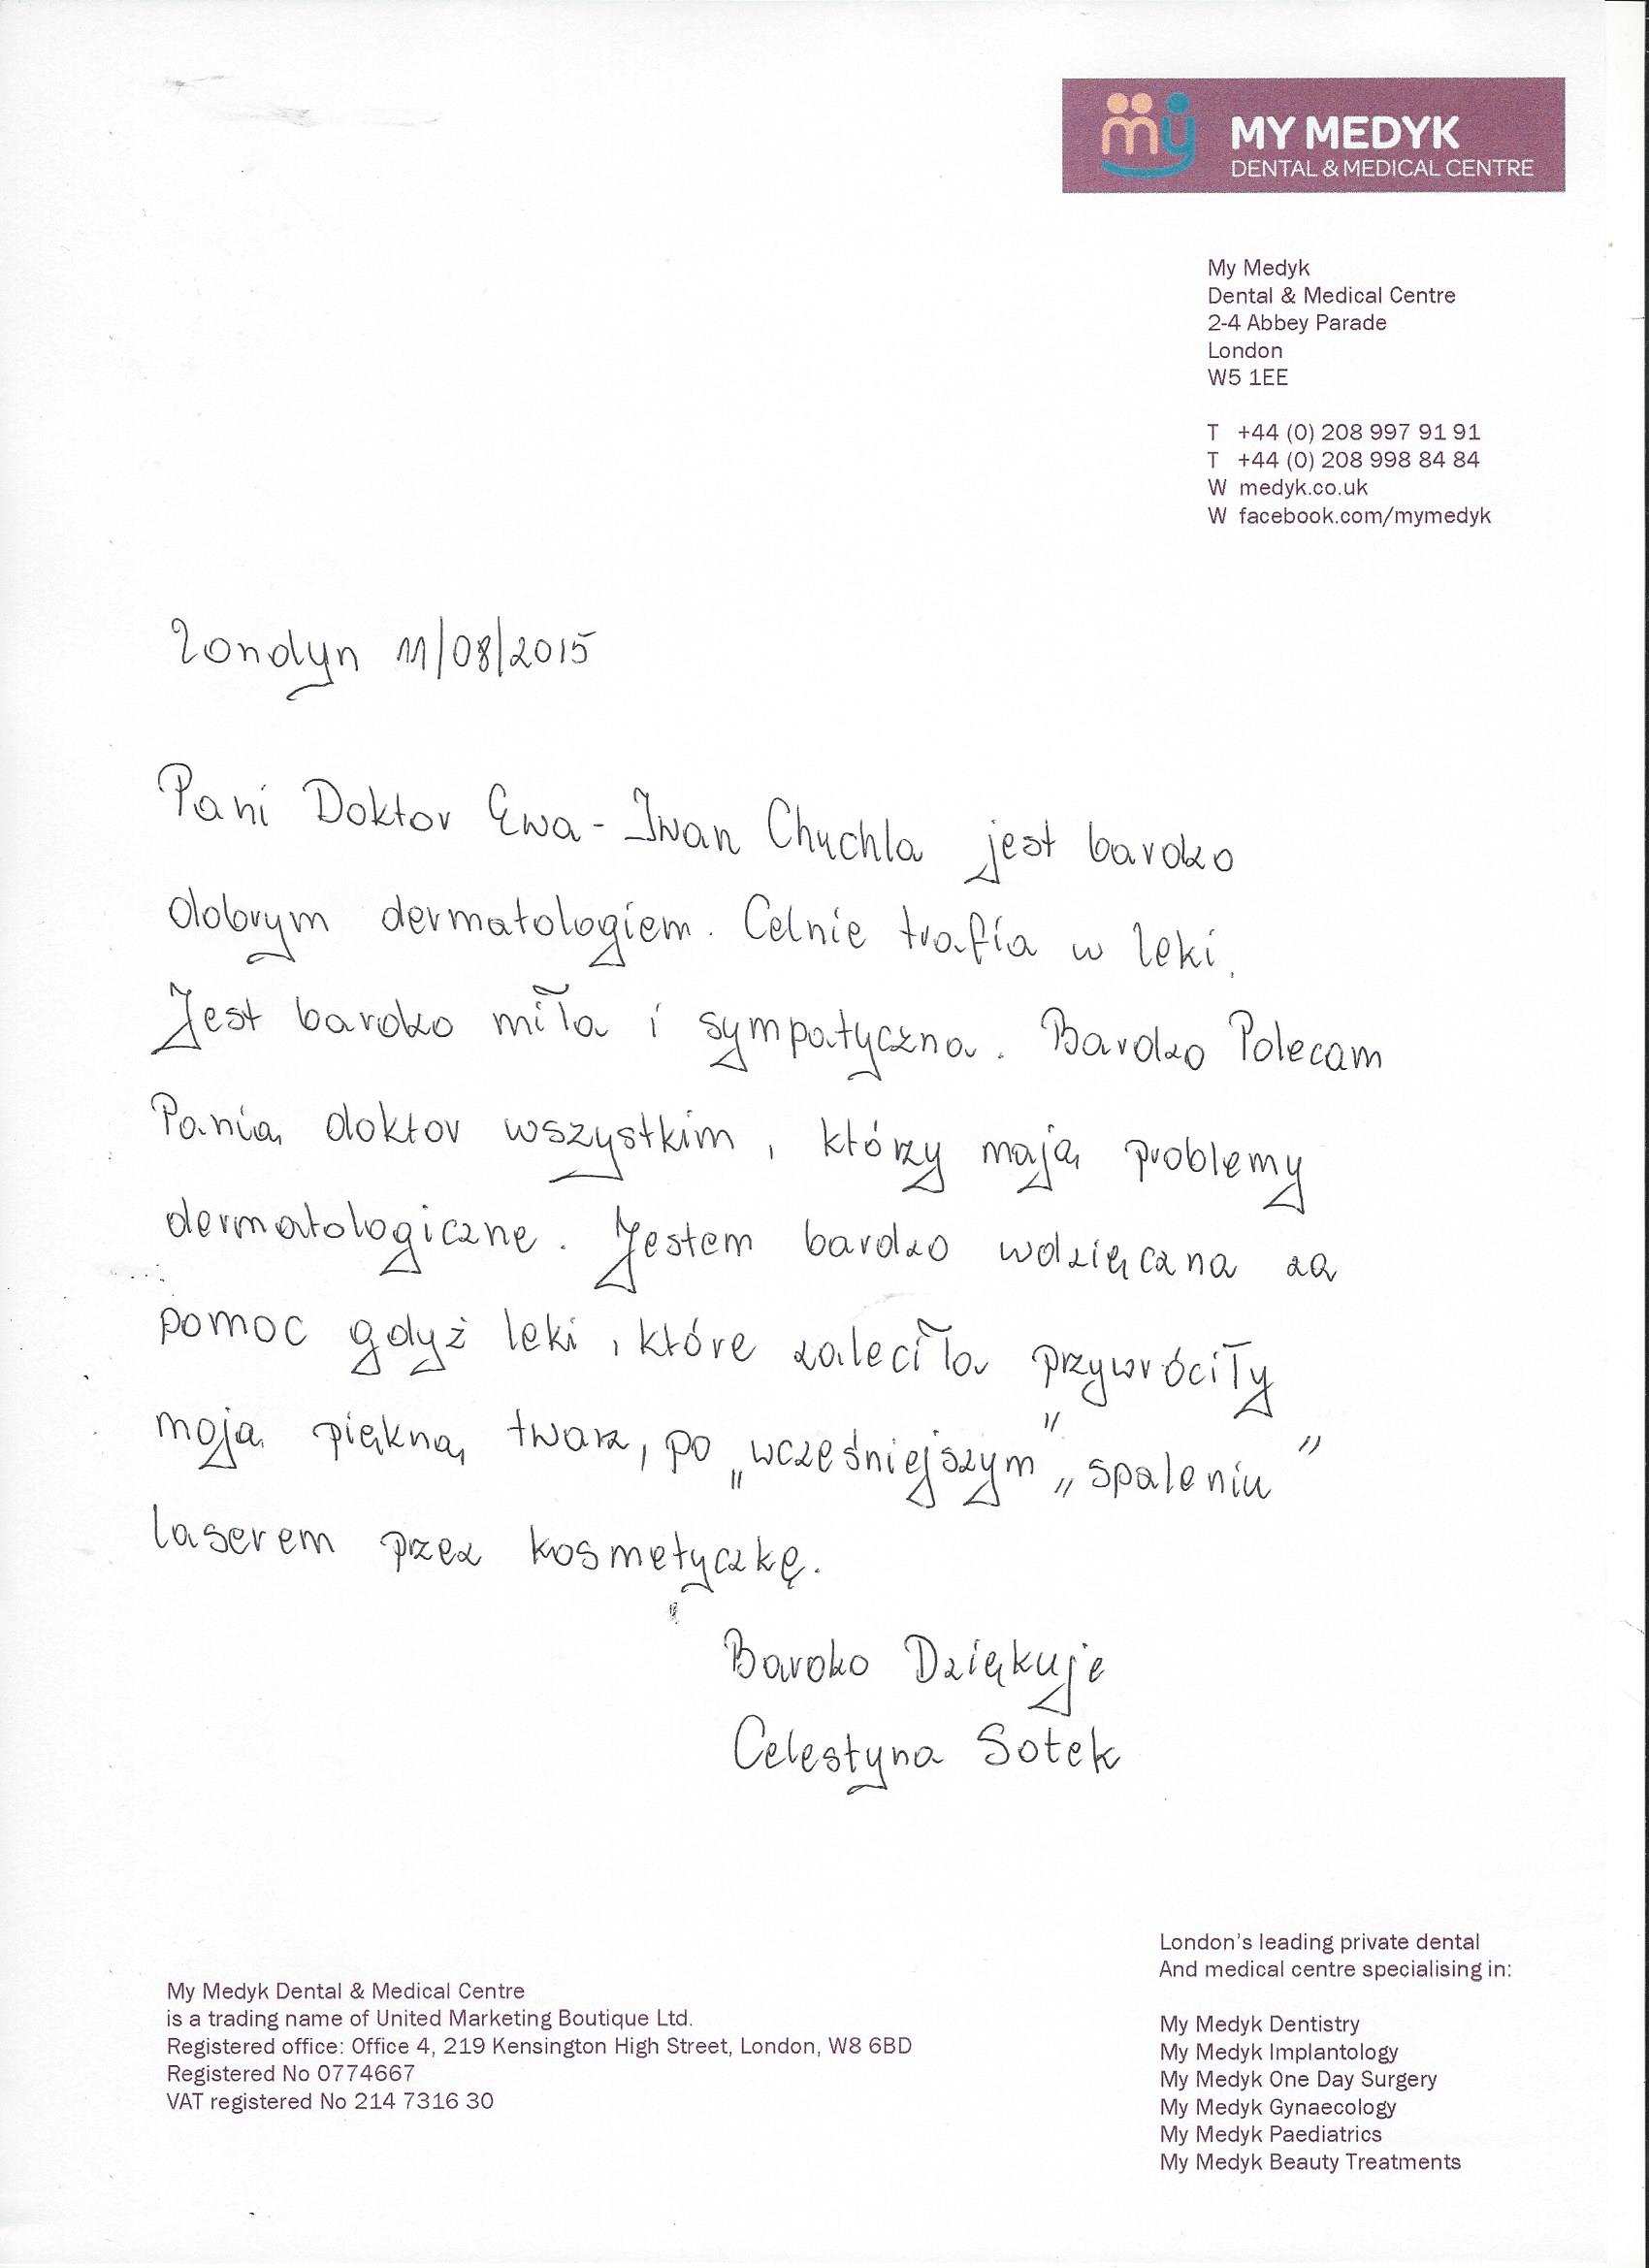 my MY MEDYK
DENTAL & MEDICAL CENTRE
My Medyk
Dental & Medical Centre
2-4 Abbey Parade
London
W5 1EE
T +44 (0) 208 997 91 91
T +44 (0) 208 998 84 84
W medyk.co.uk
W facebook.com/mymedyk
Londyn 11/08/2015
Pani Doktor Ewa-Iwan Chuchla jest bardzo
dobrym dermatologiem. Celnie trafia w leki.
Jest bardzo miła i sympatyczna. Bardzo Polecam
Panią doktor wszystkim, którzy mają problemy
dermatologiczne. Jestem bardzo wdzięczna za
pomoc gdyż leki, które zaleciła przywróciły
moją piękną twarz, po „wcześniejszym" „spaleniu"
laserem przez kosmetyczkę.
Bardzo Dziękuje
Celestyna Sotek
My Medyk Dental & Medical Centre
is a trading name of United Marketing Boutique Ltd.
Registered office: Office 4, 219 Kensington High Street, London, W8 6BD
Registered No 0774667
VAT registered No 214 7316 30
London's leading private dental
And medical centre specialising in:
My Medyk Dentistry
My Medyk Implantology
My Medyk One Day Surgery
My Medyk Gynaecology
My Medyk Paediatrics
My Medyk Beauty Treatments